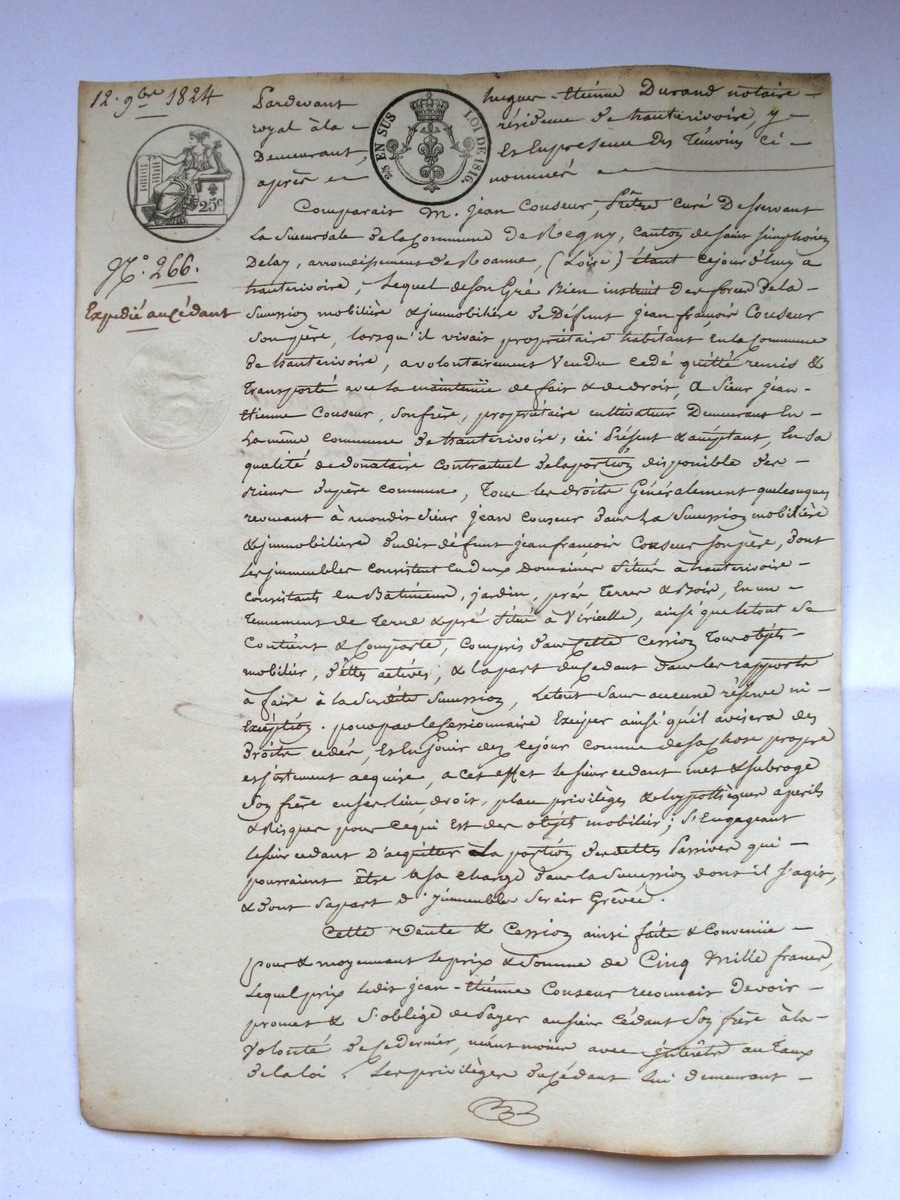 12. 9bre 1824
Pardevant hugues-Etienne Durand notaire
royal à la résidence de hauterivoire, y
Demeurant, Et En presence Des Témoins ci
après nommés
5/5 EN SUS LOI DE 1816.
25c
N°. 266.
Expédié au cédant
Comparait M. jean Couseur, Prêtre curé Desservant
La Succursale de la Commune De Regny, canton de saint simphorien
Delay, arrondissement de Roanne, (Loire) étant cejourd'huy à
hauterivoire, Lequel de son Gré Bien instruit des forces de la
Succession mobilière & immobilière de Défunt jean françois Couseur
Son père, lorsqu'il vivait propriétaire habitant en la Commune
de hauterivoire, a volontairement Vendu cedé quitté remis &
Transporté avec la maintenüe de fait & de droit, à Sieur jean
Etienne Couseur, son frère, propriétaire cultivateur Demeurant En
La même commune de hauterivoire, ici Présent & acceptant, En sa
qualité de donataire contractuel de la portion disponible des
biens du père commun, Tous les droits Généralement quelconques
revenant à mondit Sieur jean couseur dans La Succession mobilière
& immobilière dudit défunt jean francois Couseur son père, dont
Les immeubles consistent en Deux Domaines Situés à hauterivoire
consistants en Batiments, jardin, prés Terres & Bois, en un
Tenument de Terre & pré Situé à Viricelle, ainsi que le tout Se
Contient & Comporte, compris dans Cette Cession Tous objets
mobilier, dettes actives; & la part du cedant dans les rapports
à faire à la Susdite Succession, Le tout Sans aucune réserve ni
Exception. pour par le Cessionnaire Exciper ainsi qu'il avisera des
Droits cédés, Et En jouir dez Ce jour comme de sa chose propre
et justement acquise, a cet effet le sieur cedant met & subroge
Son frère en ses lieu, droit, place privilèges & hypothèques a perils
& Risques pour Ce qui Est des objets mobilier; S'Engageant
le sieur cedant D'acquitter La portion des dettes Passives qui
pourraient être à sa charge dans la Succession dont il s'agit,
& dont sa part d'immeuble Serait Grêvée.
Cette vente & Cession ainsi faite & Convenüe
pour & moyennant le prix & Somme de Cinq mille francs,
Lequel prix ledit jean-Etienne Couseur reconnait Devoir
promet & S'oblige de Payer au sieur Cédant Son frère à la
Volonté de ce dernier, néant moins avec intérêts au Taux
de la loi. Les privilèges du cédant lui demeurant